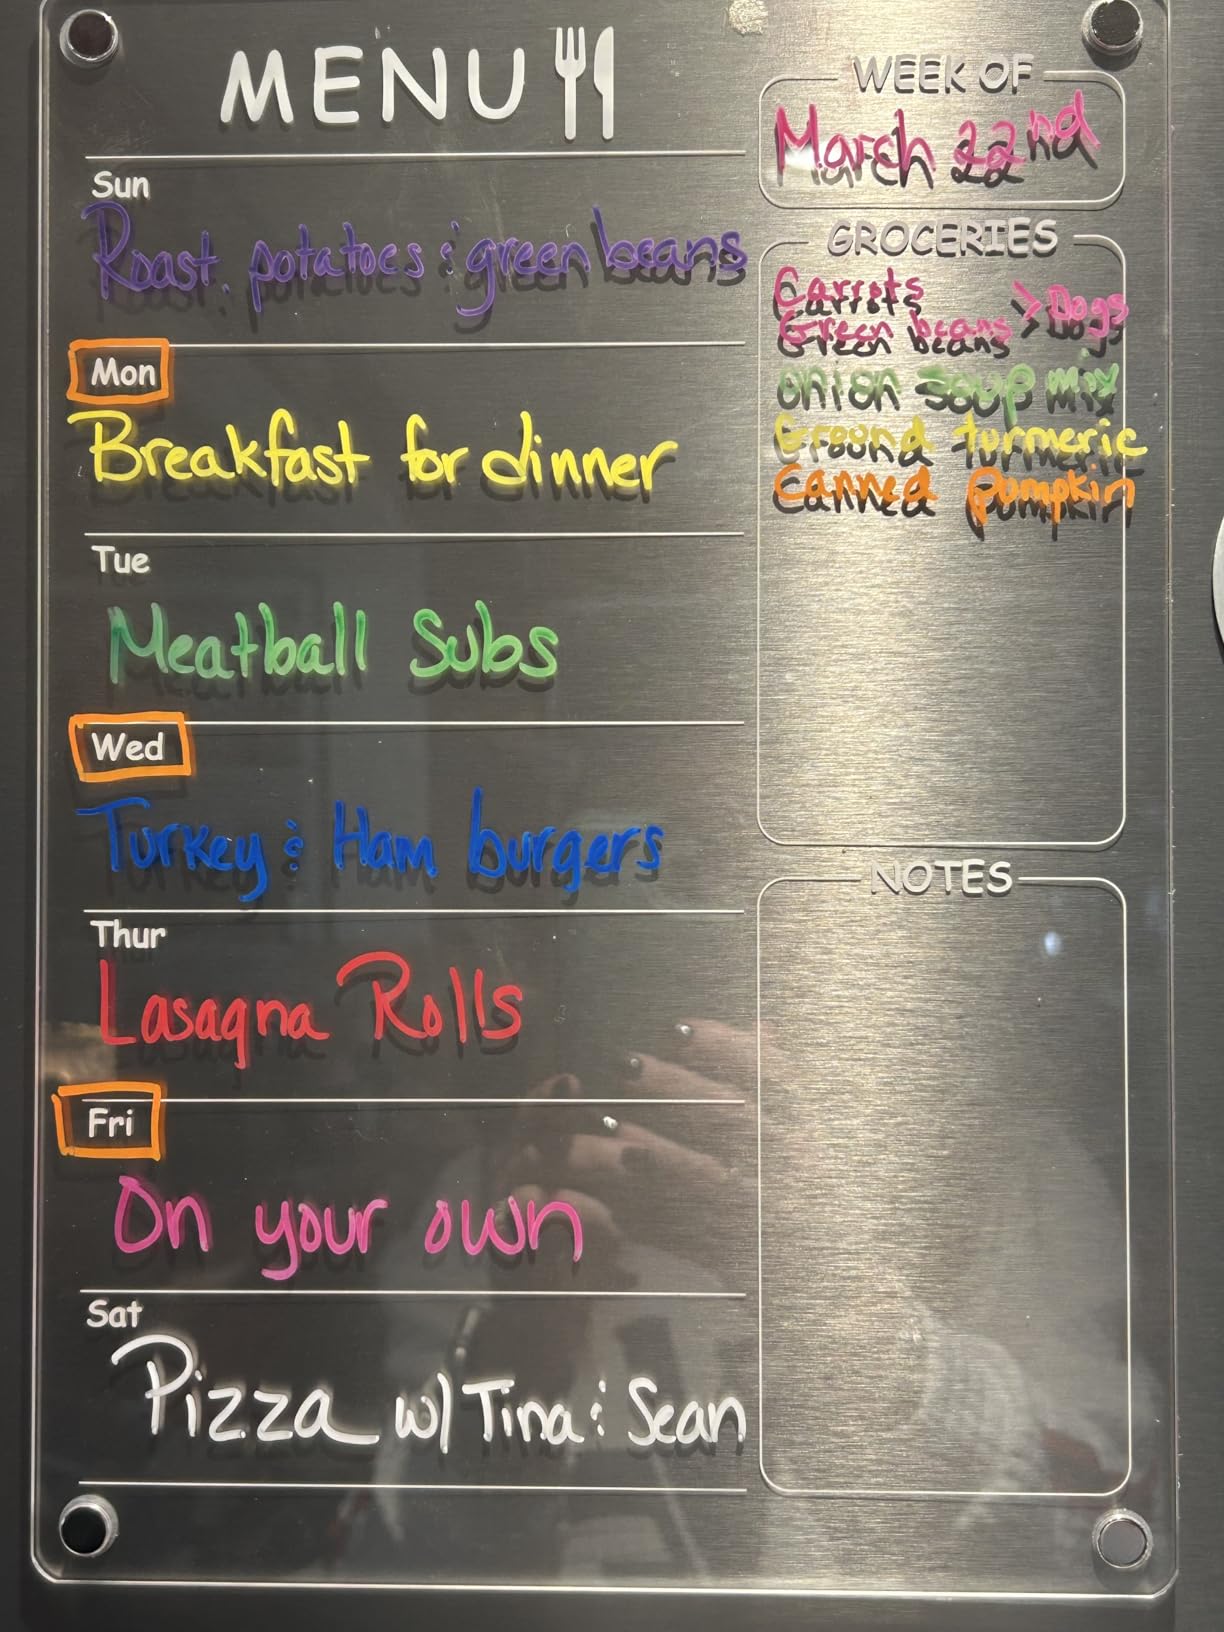 MENU
WEEK OF
March 22nd
Sun
Roast, potatoes & green beans
Mon
Breakfast for dinner
Tue
Meatball Subs
Wed
Turkey & Ham burgers
Thur
Lasagna Rolls
Fri
On your own
Sat
Pizza w/ Tina & Sean
GROCERIES
Carrots
Green beans > Dogs
onion soup mix
Ground turmeric
Canned pumpkin
NOTES